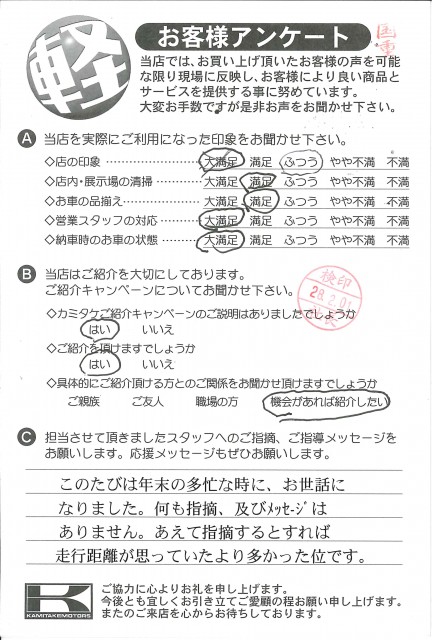 軽
お客様アンケート
当店では、お買い上げ頂いたお客様の声を可能
な限り現場に反映し、お客様により良い商品と
サービスを提供する事に努めています。
大変お手数ですが是非お声をお聞かせ下さい。
A 当店を実際にご利用になった印象をお聞かせ下さい。
◇店の印象 ………………… 大満足 満足 ふつう やや不満 不満
◇店内・展示場の清掃………… 大満足 満足 ふつう やや不満 不満
◇お車の品揃え……………… 大満足 満足 ふつう やや不満 不満
◇営業スタッフの対応 ………… 大満足 満足 ふつう やや不満 不満
◇納車時のお車の状態 ………… 大満足 満足 ふつう やや不満 不満
B 当店はご紹介を大切にしております。
ご紹介キャンペーンについてお聞かせ下さい。
◇カミタケご紹介キャンペーンのご説明はありましたでしょうか
はい いいえ
◇ご紹介を頂けますでしょうか
はい いいえ
◇具体的にご紹介頂ける方とのご関係をお聞かせ頂けますでしょうか
ご親族 ご友人 職場の方 機会があれば紹介したい
検印
28.2.01
C 担当させて頂きましたスタッフへのご指摘、ご指導メッセージを
お願いします。応援メッセージもぜひお願いします。
このたびは年末の多忙な時に、お世話に
なりました。何も指摘、及びﾒｯｾｰｼﾞは
ありません。あえて指摘するとすれば
走行距離が思っていたより多かった位です。
K
KAMITAKEMOTORS
ご協力に心よりお礼を申し上げます。
今後とも宜しくお引き立てご愛顧の程お願い申し上げます。
またのご来店を心からお待ちしております。